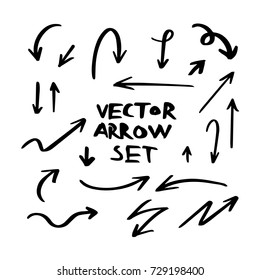 VECTOR
ARROW
SET
shutterstock.com · 729198400